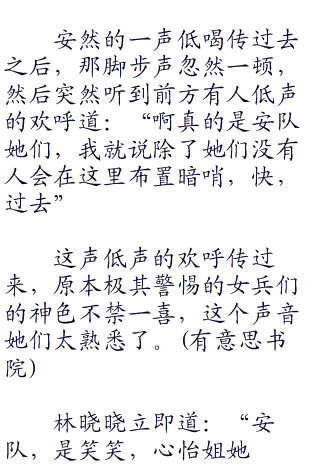 安然的一声低喝传过去
之后，那脚步声忽然一顿，
然后突然听到前方有人低声
的欢呼道：“啊真的是安队
她们，我就说除了她们没有
人会在这里布置暗哨，快，
过去”
这声低声的欢呼传过
来，原本极其警惕的女兵们
的神色不禁一喜，这个声音
她们太熟悉了。(有意思书
院)
林晓晓立即道：“安
队，是笑笑，心怡姐她